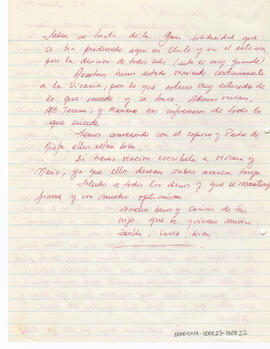 se trata de la gran solidaridad que
se ha producido aquí en Chile y en el exterior
por la decisión de todos Uds. (esto es muy grande)
Nosotros hemos estado viniendo continuamente
a la Vicaría, por lo que estamos muy enterados de
lo que sucede y se hace. Además
Teresa, y Mariano nos informan de todo lo
que sucede.
Hemos conversado con el
ellos están bien.
Si tienes ocasión escríbele a
ya que ellos desean saber acerca tuyo.
Saludos a todos los demás y que se mantengan
firmes y con mucho optimismo.
Muchos besos y cariños de tus
hijos, que te quieren mucho
000004-000023-000022